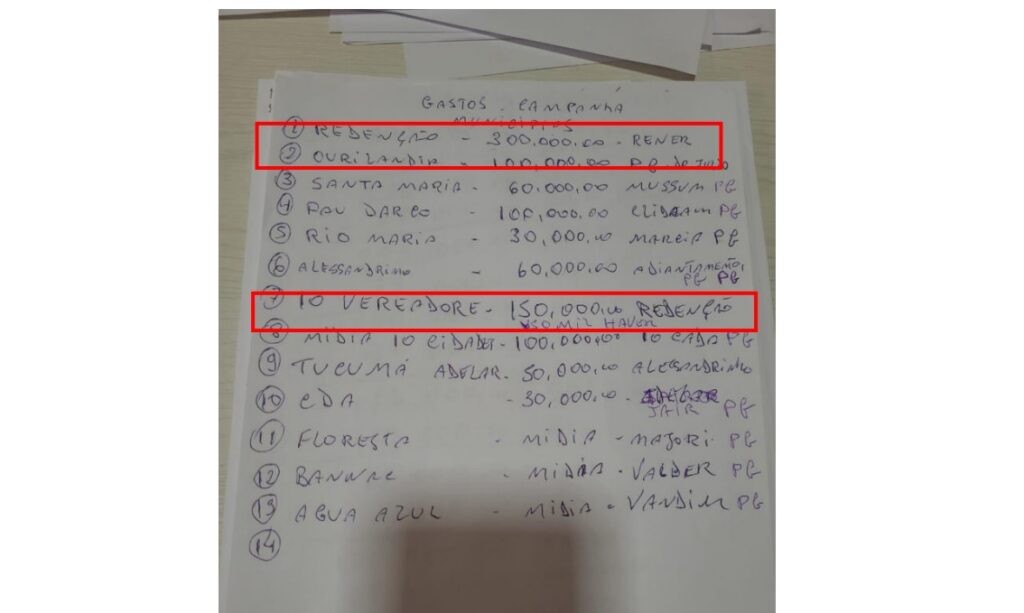 GASTOS - CAMPANHA
MUNICIPIOS
① REDENÇÃO - 300.000,00 - RENER
② OURILANDIA - 100,000,00 PG.
③ SANTA MARIA - 60.000,00 MUSSUM PG
④ PAU DARCO - 100,000.00 PG
⑤ RIO MARIA - 30,000,00 MARCIA PG
⑥ ALESSANDRINHO - 60.000.00 ADIANTAMENTO,
PG PG
⑦ 10 VEREADORE - 150,000,00 REDENÇÃO
50 MIL HAVER
⑧ MIDIA 10 CIDADES - 100,000,00 10 CADA PG
⑨ TUCUMÃ ADELAR - 50,000,00 ALESSANDRINHO
⑩ CDA - 30,000,00 -
JAIR PG
⑪ FLORESTA - MIDIA - MAJORI PG
⑫ BANNAC - MIDIA - VALDER PG
⑬ AGUA AZUL - MIDIA - VANDIM PG
⑭